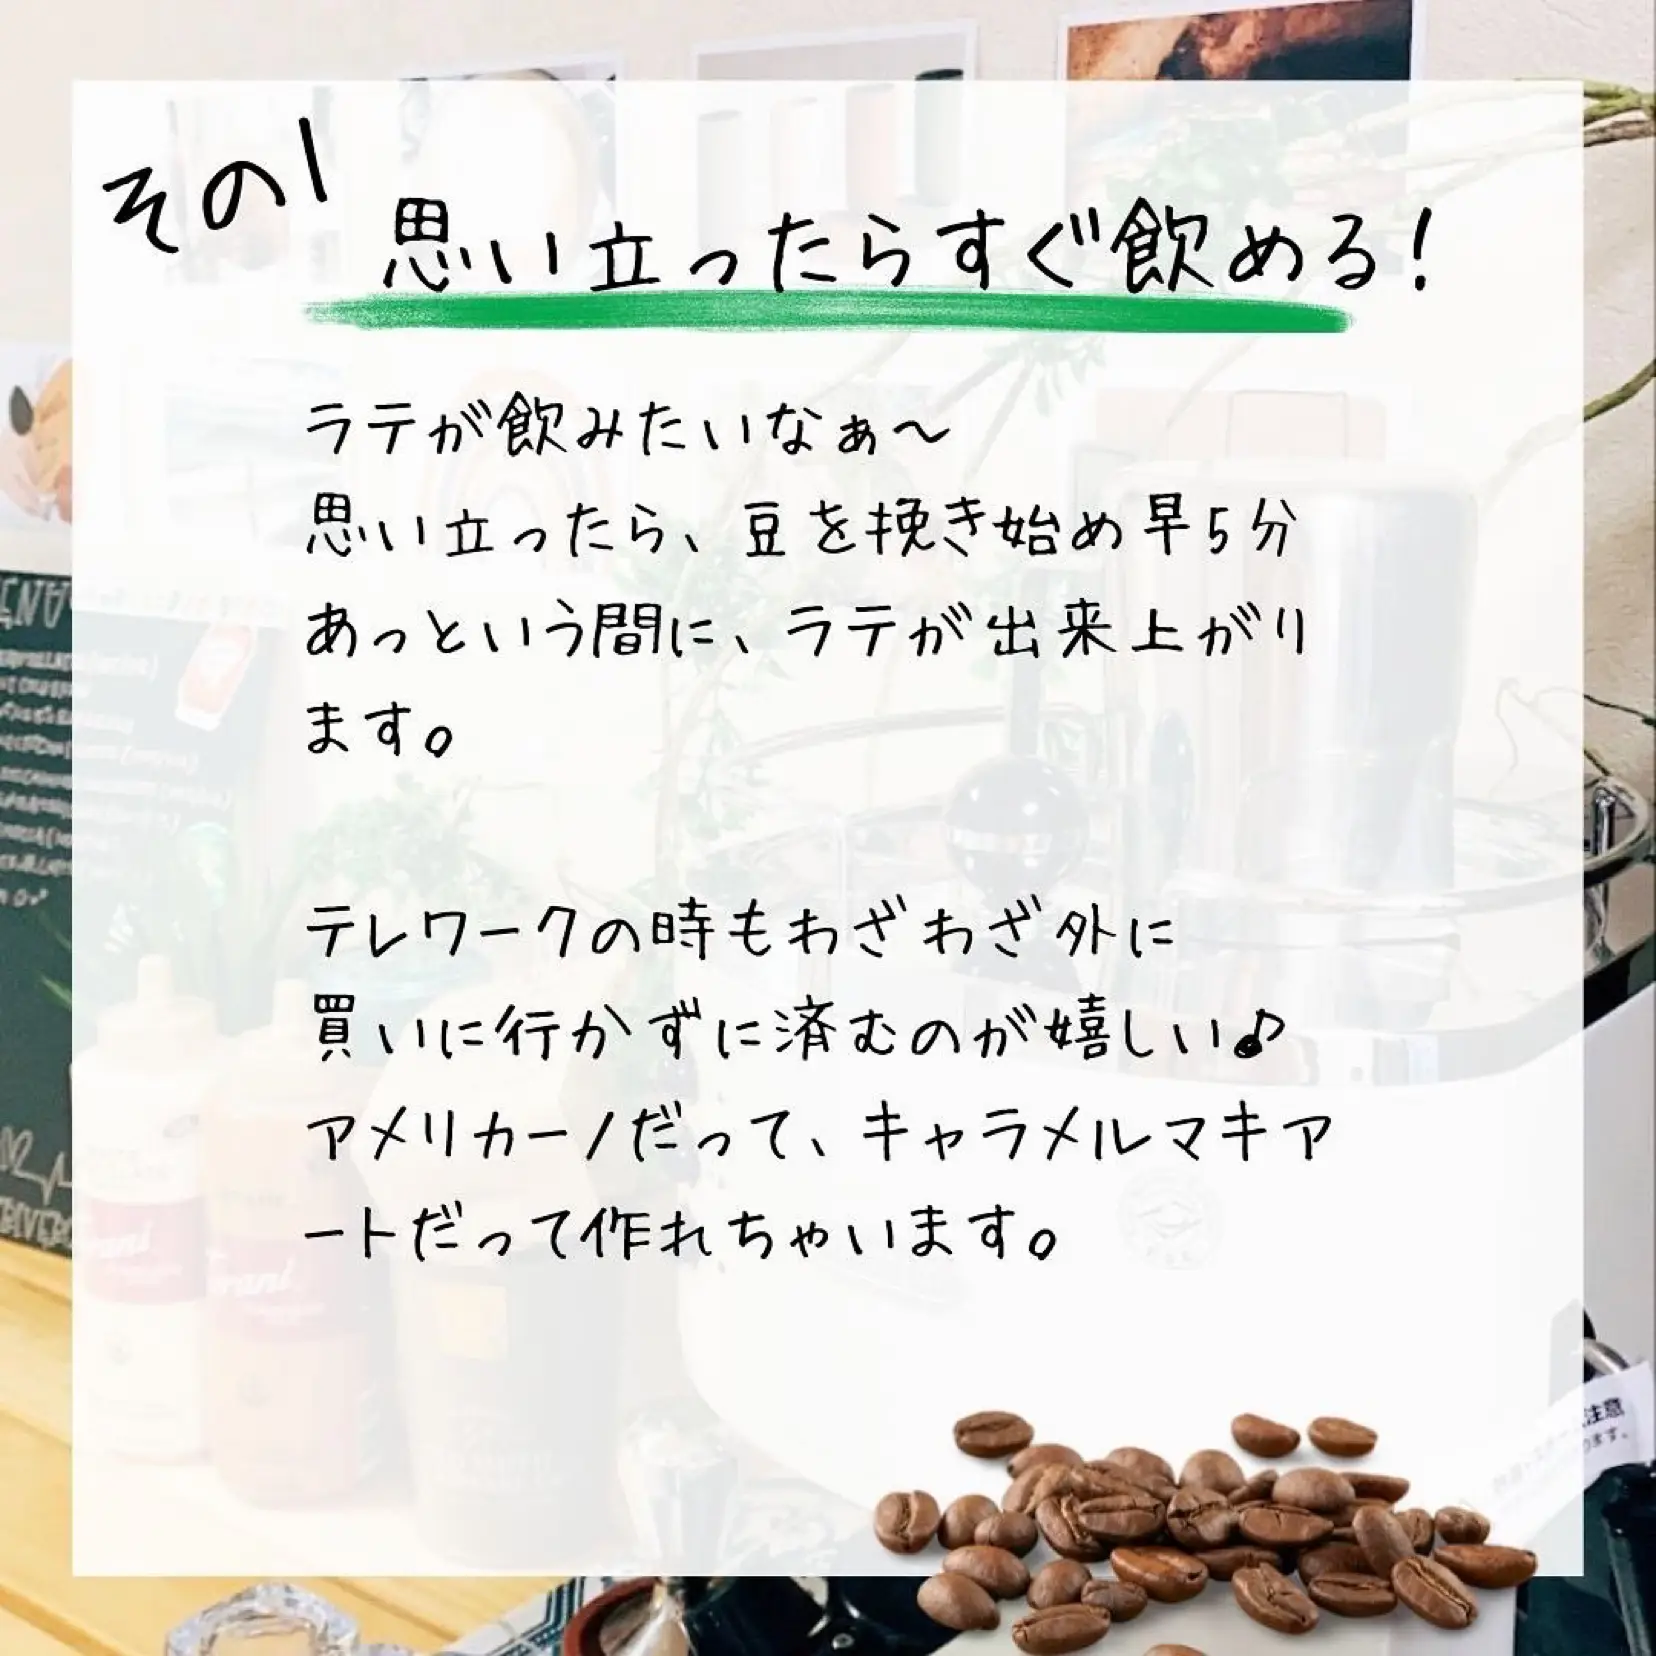 その1
思い立ったらすぐ飲める!
ラテが飲みたいなぁ〜
思い立ったら、豆を挽き始め早5分
あっという間に、ラテが出来上がり
ます。
テレワークの時もわざわざ外に
買いに行かずに済むのが嬉しい♪
アメリカーノだって、キャラメルマキア
ートだって作れちゃいます。
注意
ます。